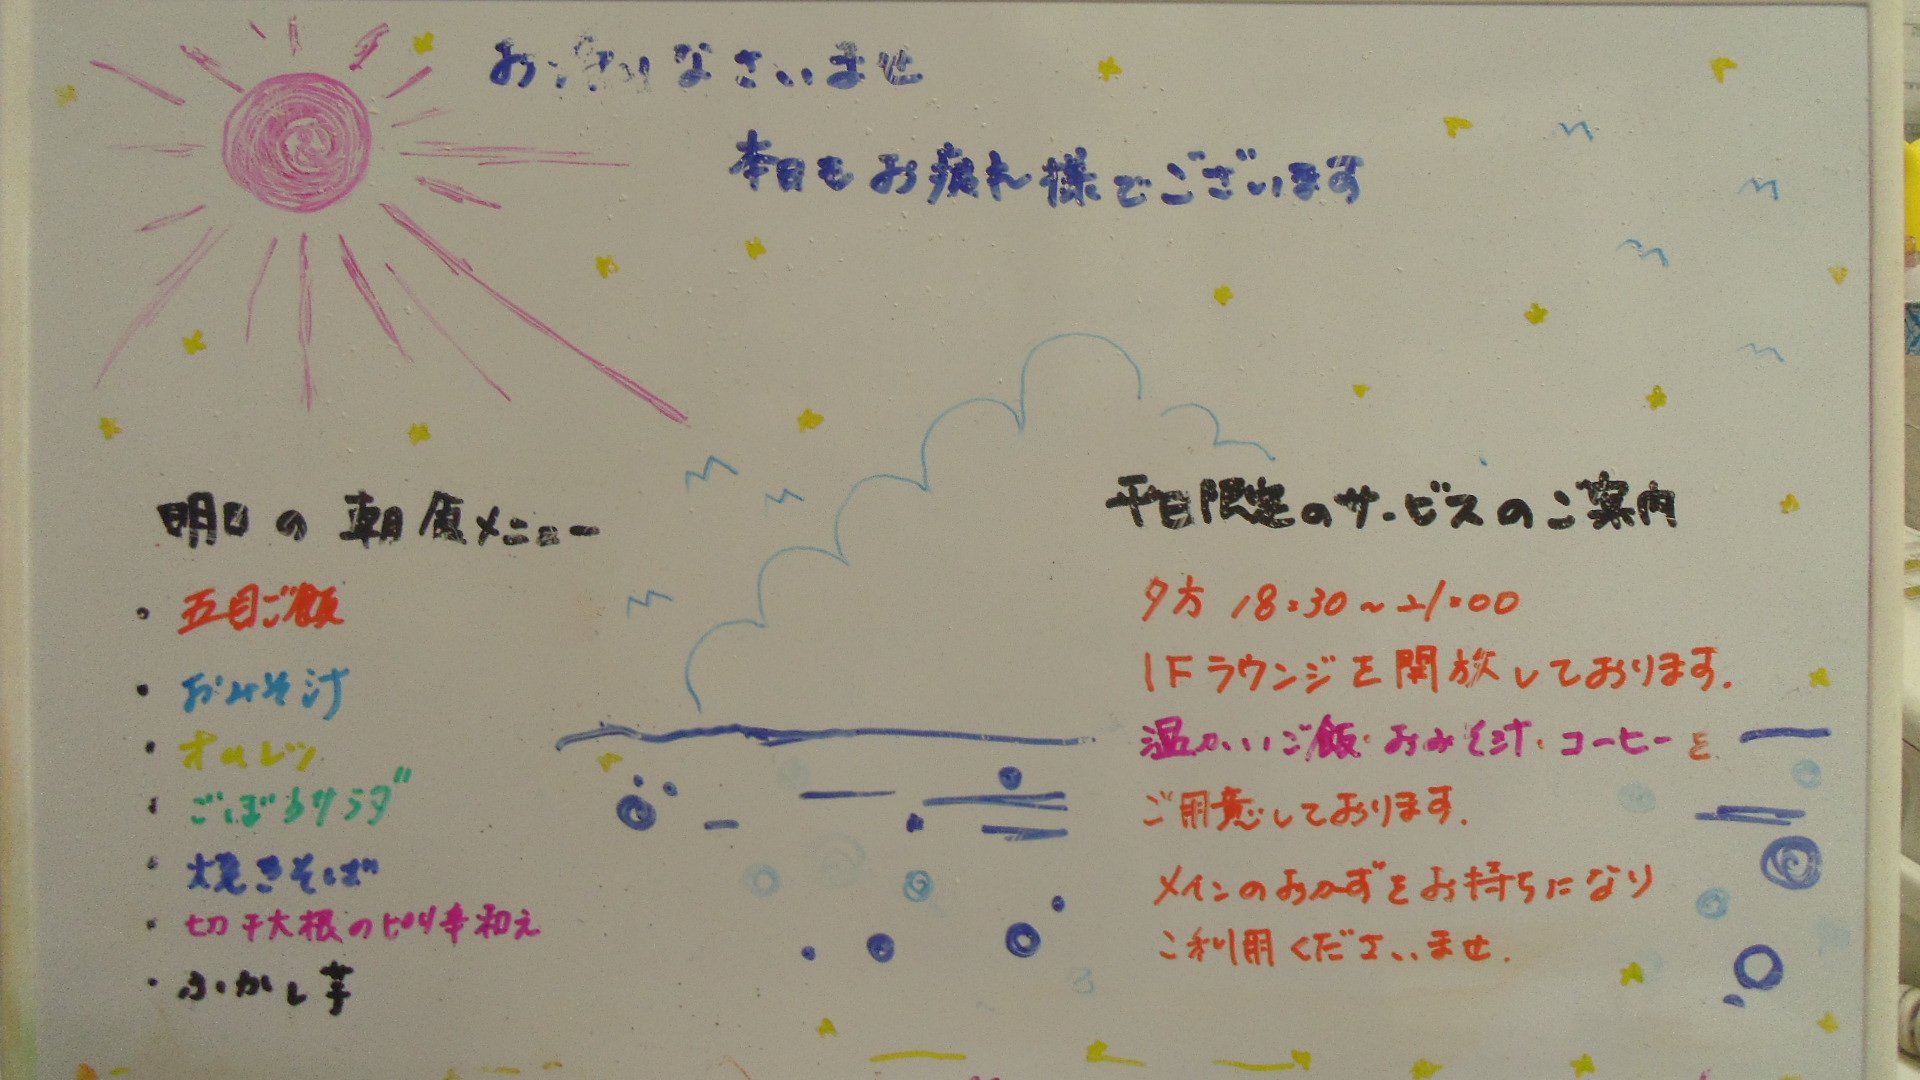 お帰りなさいませ
本日もお疲れ様でございます
明日の朝食メニュー
・五目ご飯
・おみそ汁
・オムレツ
・ごぼうサラダ
・焼きそば
・切干大根のピリ辛和え
・ふかし芋
平日限定のサービスのご案内
夕方 18:30～21:00
1Fラウンジを開放しております.
温かいご飯・おみそ汁・コーヒーを
ご用意しております.
メインのおかずをお持ちになり
ご利用くださいませ.